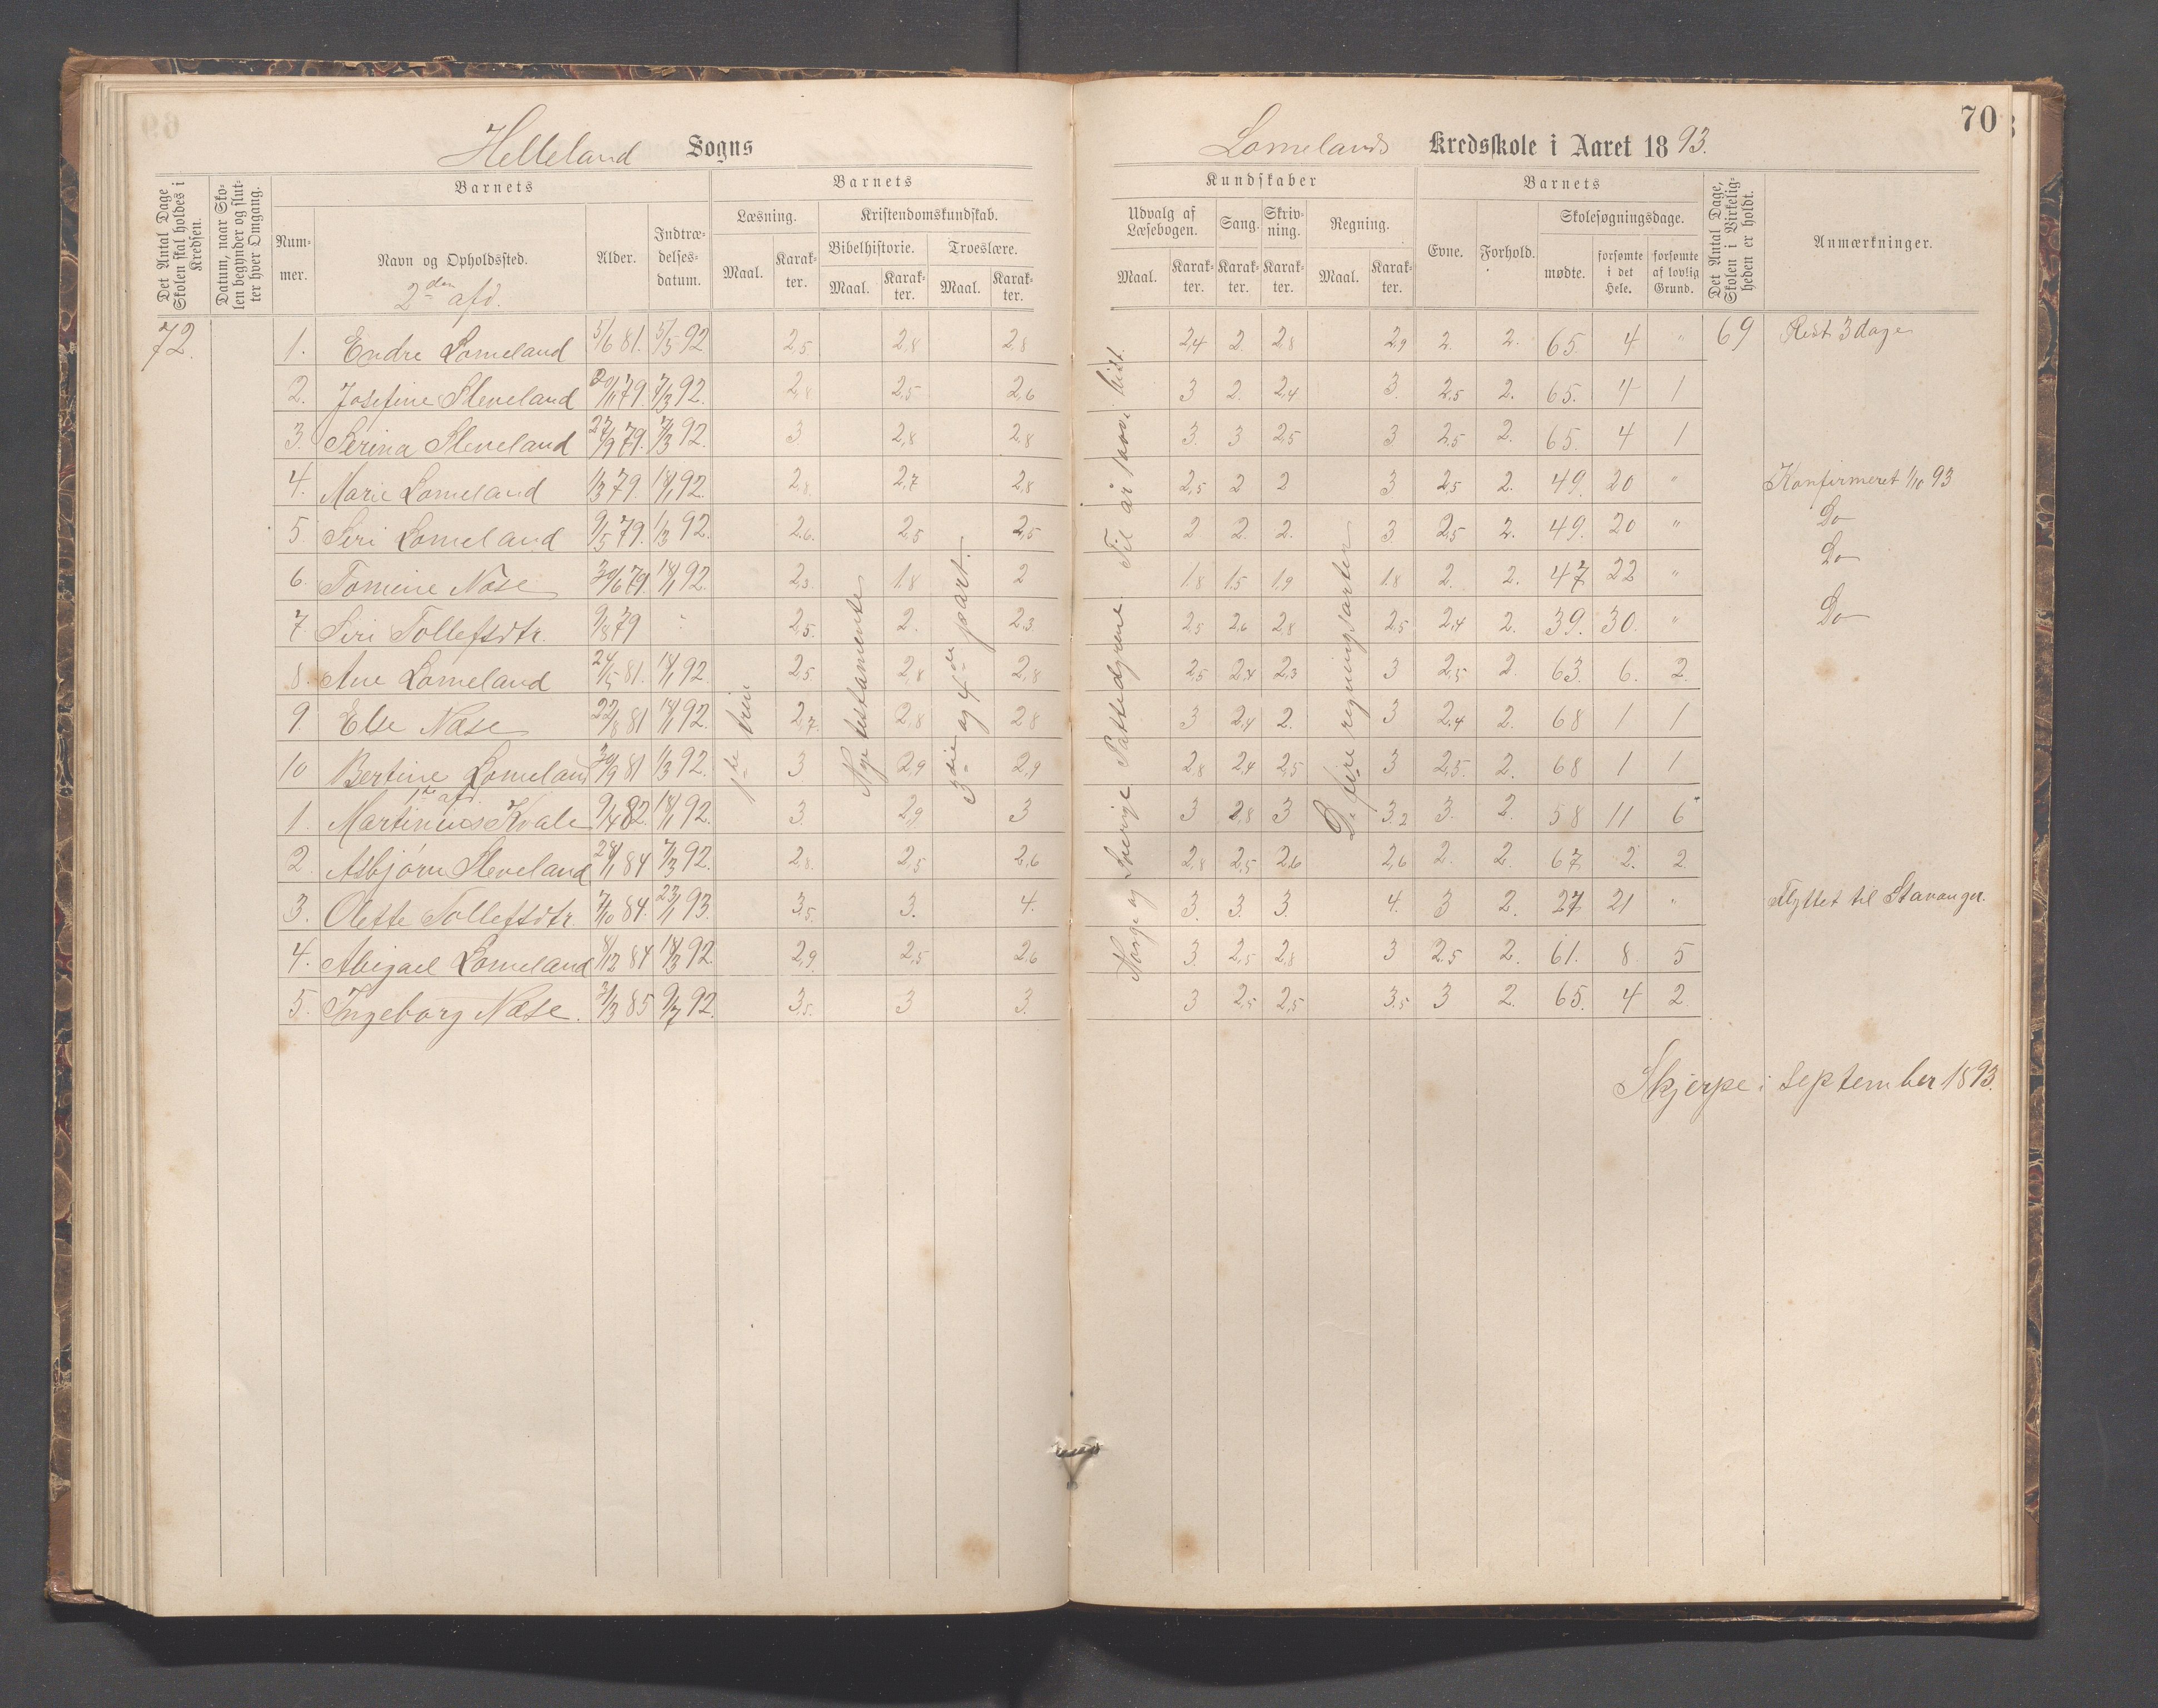 70
Helleland Sogns
Lomelands Kredsskole i Aaret 1893.
Det Antal Dage Skolen skal holdes i Kredsen.
Datum, naar Skolen begynder og slutter hver Omgang.
Nummer.
Barnets
Navn og Opholdssted.
2den afd.
Alder.
Indtrædelsesdatum.
Barnets
Læsning.
Maal.
Karakter.
Kristendomskundskab.
Bibelhistorie.
Maal.
Karakter.
Troeslære.
Maal.
Karakter.
Kundskaber
Udvalg af Læsebogen.
Maal.
Karakter.
Sang.
Karakter.
Skrivning.
Karakter.
Regning.
Maal.
Karakter.
Barnets
Evne.
Forhold.
Skolesøgningsdage.
mødte.
forsømte i det Hele.
forsømte af lovlig Grund.
Det Antal Dage, Skolen i Virkeligheden er holdt.
Anmærkninger.
72. 1. Endre Lomeland 5/6 81. 5/5 92 2,5. 2,8 2,8 2,4 2. 2,8 2,9 2. 2. 65. 4 " 69 Rest 3 dage
2. Josefine Sleveland 20/11 79. 7/3 92. 2,8 2,5 2,6 3 2. 2,4 3. 2,5 2. 65. 4 1
3. Serina Sleveland 27/9 79. 7/3 92. 3 2,8 2,8 3. 3 2,5 3 2,5 2. 65. 4 1
4. Marie Lomeland 1/3 79. 18/1 92. 2,8 2,7 2,8 2,5 2 2 3 2,5 2. 49. 20 " Konfirmeret 1/10 93
5. Seri Lomeland 9/5 79. 1/3 92. 2,6. 2,5 2,5 2 2. 2. 3. 2,5 2. 49. 20 " Do
6. Tomine Nese 30/6 79. 18/1 92. 2,3. 1,8 2 1,8 1,5 1,9 1,8 2. 2. 47 22 " Do
7 Siri Tollefsdtr. 9/8 79 " 2,5. 2. 2,3 2,5 2,6 2,8 2,5 2,4 2. 39. 30. " Do
8. Ane Lomeland 24/5 81. 18/1 92. 2,5 2,8 2,8 2,5 2,4 2,3 3 2,5 2. 63. 6. 2.
9. Else Næse 22/8 81 18/1 92. 2,7. 2,8 2,8 3 2,4 2. 3 2,4 2. 68 1 1
10 Bertine Lomeland 30/9 81 1/3 92. 3 2,9 2,9 2,8 2,4 2,5 3 2,5. 2. 68 1 1
1te afd.
1. Martinius Kvale 9/4 82. 18/1 92. 3. 2,9 3 3 2,8 3 3,2 3. 2. 58 11 6
2. Asbjørn Sleveland 28/1 84 7/3 92. 2,8. 2,5 2,6 2,8 2,5 2,6 2,6 2. 2. 67. 2. 2.
3. Olette Tollefsdtr. 7/10 84. 23/1 93. 3,5. 3. 4. 3. 3. 3. 4. 3 2. 27 21 " Flyttet til Stavanger.
4. Abigael Lomeland 8/12 84 18/3 92. 2,9. 2,5 2,6 3. 2,5 2,8 3 2,5 2. 61. 8 5
5. Ingeborg Næse. 3/3 85 9/7 92. 3,5. 3 3. 3 2,5 2,5 3,5 3 2. 65. 4 2.
1te trin
Nye testamente
3die og 4de part.
Norge og Sverige Pattedyrene. Til år
De fire regningsarter
Skjerpe i September 1893.